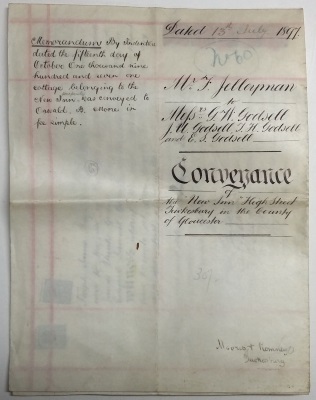 Memorandum By Indenture
dated the fifteenth day of
October One thousand nine
hundred and seven one
cottage belonging to the
New Inn was conveyed to
Oswald A. in
fee simple.
Dated 13th July 1897
No 60
Mr. F. Jelleyman
to
Messrs G. W. Godsell
J. H. Godsell, L. H. Godsell
and E. J. Godsell
Conveyance
of
the "New Inn" High Street
Tewkesbury in the County
of Gloucester
Tewkesbury